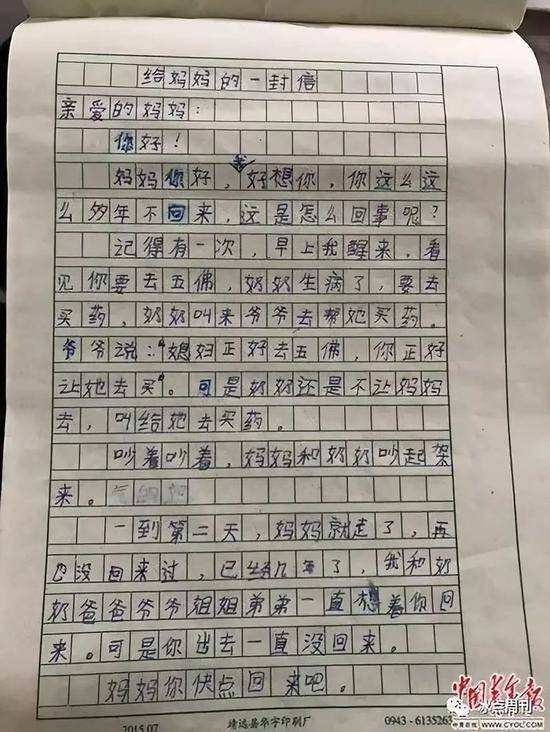 给妈妈的一封信
亲爱的妈妈：
你好！
妈妈你好，我好想你，你这么这
么多年不回来，这是怎么回事呢？
记得有一次，早上我醒来，看
见你要去五佛，奶奶生病了，要去
买药，奶奶叫来爷爷去帮她买药。
爷爷说：“媳妇正好去五佛，你正好
让她去买”。可是奶奶还是不让妈妈
去，叫给她去买药。
吵着吵着，妈妈和奶奶吵起架
来。
一到第二天，妈妈就走了，再
也没回来过，已经几年了，我和奶
奶爸爸爷爷姐姐弟弟一直想着你回
来。可是你出去一直没回来。
妈妈你快点回来吧。
2015.07 靖远县华宇印刷厂 0943-6135263
中国青年报
中青在线 WWW.CYOL.COM
冰点周刊